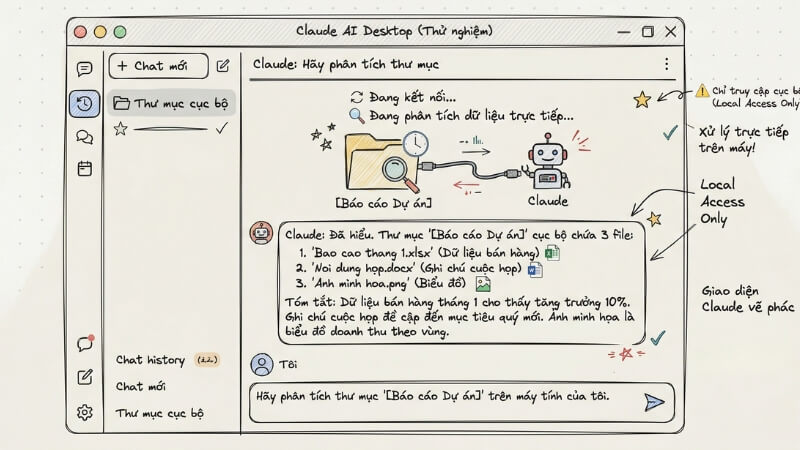 Claude AI Desktop (Thử nghiệm)
+ Chat mới
Thư mục cục bộ
Chat history
Chat mới
Thư mục cục bộ
Claude: Hãy phân tích thư mục
Đang kết nối...
Đang phân tích dữ liệu trực tiếp...
[Báo cáo Dự án]
Claude
Claude: Đã hiểu. Thư mục '[Báo cáo Dự án]' cục bộ chứa 3 file:
1. 'Bao cao thang 1.xlsx' (Dữ liệu bán hàng)
2. 'Noi dung họp.docx' (Ghi chú cuộc họp)
3. 'Anh minh hoa.png' (Biểu đồ)
Tóm tắt: Dữ liệu bán hàng tháng 1 cho thấy tăng trưởng 10%.
Ghi chú cuộc họp đề cập đến mục tiêu quý mới. Ảnh minh họa là
biểu đồ doanh thu theo vùng.
Tôi
Hãy phân tích thư mục '[Báo cáo Dự án]' trên máy tính của tôi.
Chỉ truy cập cục
(Local Access Only
Xử lý trực tiếp
trên máy!
Local
Access
Only
Giao diện
Claude vẽ phác